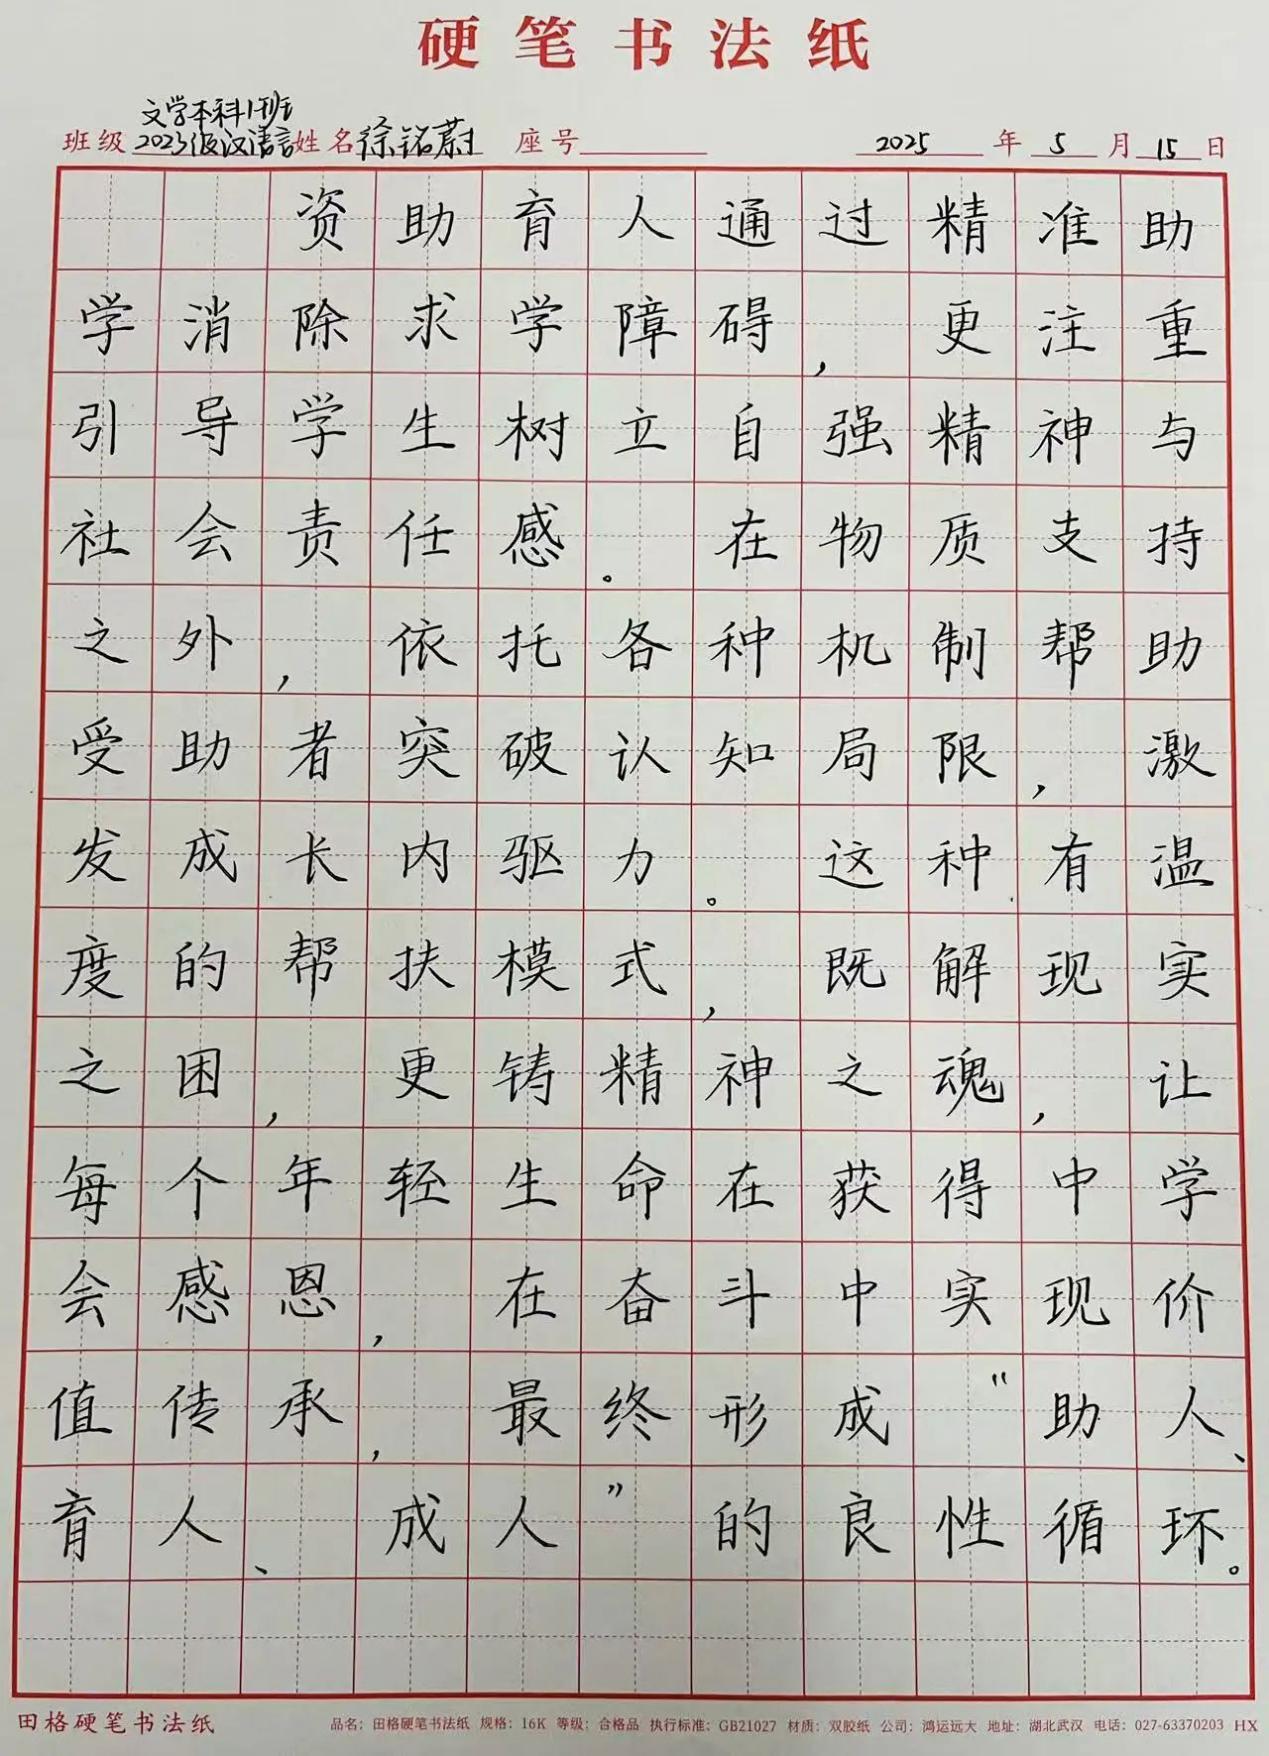 硬笔书法纸
文学本科1班
班级 2023级汉语言 姓名 徐铭蔚 座号 2025 年 5 月 15 日
资助育人通过精准助
学消除求学障碍，更注重
引导学生树立自强精神与
社会责任感。在物质支持
之外，依托各种机制帮助
受助者突破认知局限，激
发成长内驱力。这种有温
度的帮扶模式，既解现实
之困，更铸精神之魂，让
每个年轻生命在获得中学
会感恩，在奋斗中实现价
值传承，最终形成“助人、
育人、成人”的良性循环。
田格硬笔书法纸 品名：田格硬笔书法纸 规格：16K 等级：合格品 执行标准：GB21027 材质：双胶纸 公司：鸿运远大 地址：湖北武汉 电话：027-63370203 HX